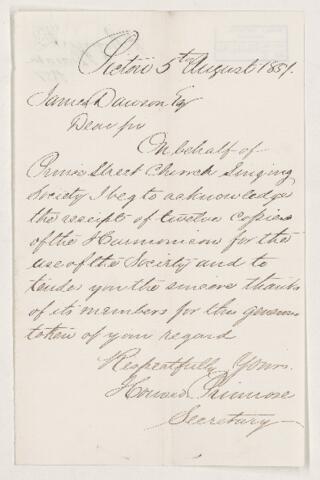 Pictou 5th August 1881.
James Dawson Esq
Dear Sir
On behalf of
Prince Street Church Singing
Society I beg to acknowledge
the receipt of twelve copies
of the Harmonicon for the
use of the Society and to
tender you the sincere thanks
of its members for this generous
token of your regard
Respectfully Yours.
Howard Primrose
Secretary